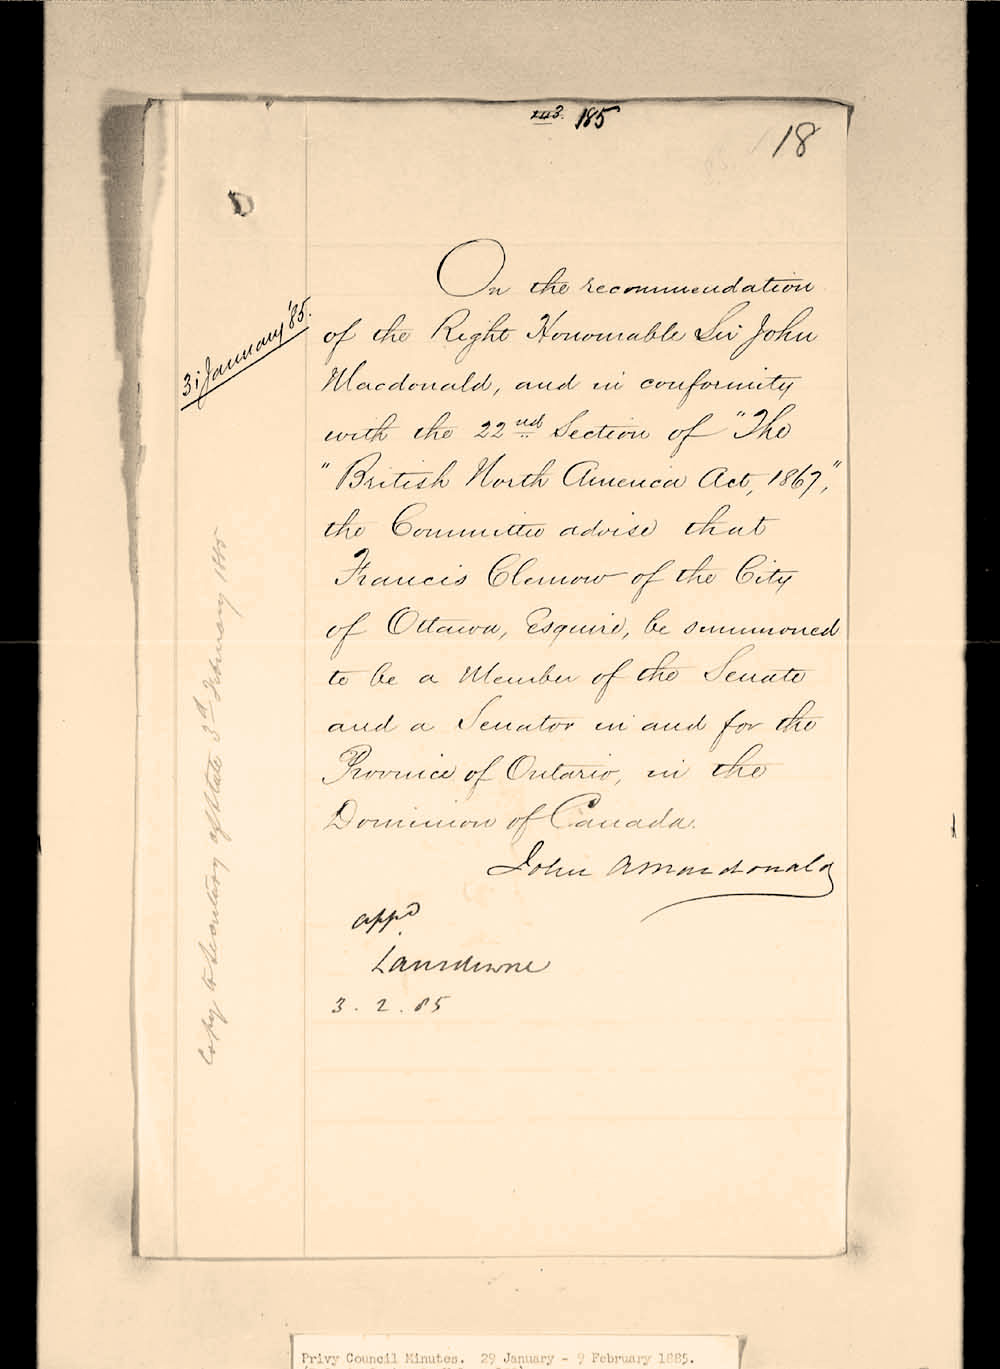 143. 185
18
31 January '85.
On the recommendation
of the Right Honourable Sir John
Macdonald, and in conformity
with the 22nd Section of "The
"British North America Act, 1867,"
the Committee advise that
Francis Clemow of the City
of Ottawa, Esquire, be summoned
to be a Member of the Senate
and a Senator in and for the
Province of Ontario, in the
Dominion of Canada.
John A Macdonald
appd
Lansdowne
3. 2. 85
Copy to Secretary of State 3d February 1885
Privy Council Minutes. 29 January - 9 February 1885.